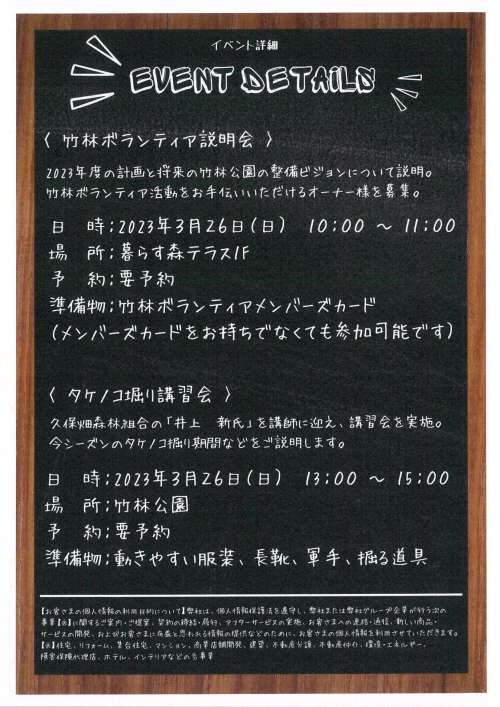 イベント詳細
EVENT DETAILS
〈 竹林ボランティア説明会 〉
2023年度の計画と将来の竹林公園の整備ビジョンについて説明。
竹林ボランティア活動をお手伝いいただけるオーナー様を募集。
日　時；2023年3月26日(日)　10:00 ～ 11:00
場　所；暮らす森テラス1F
予　約；要予約
準備物；竹林ボランティアメンバーズカード
(メンバーズカードをお持ちでなくても参加可能です)
〈 タケノコ堀り講習会 〉
久保畑森林組合の「井上　新氏」を講師に迎え、講習会を実施。
今シーズンのタケノコ掘り期間などをご説明します。
日　時；2023年3月26日(日)　13:00 ～ 15:00
場　所；竹林公園
予　約；要予約
準備物；動きやすい服装、長靴、軍手、掘る道具
【お客さまの個人情報の利用目的について】弊社は、個人情報保護法を遵守し、弊社または弊社グループ企業が行う次の
事業【※】に関するご案内・ご提案、契約の締結・履行、アフターサービスの実施、お客さまへの連絡・通信、新しい商品・
サービスの開発、およびお客さまに有益と思われる情報の提供などのために、お客さまの個人情報を利用させていただきます。
【※】住宅、リフォーム、集合住宅、マンション、商業店舗開発、建築、不動産分譲、不動産仲介、環境・エネルギー、
損害保険代理店、ホテル、インテリアなどの各事業